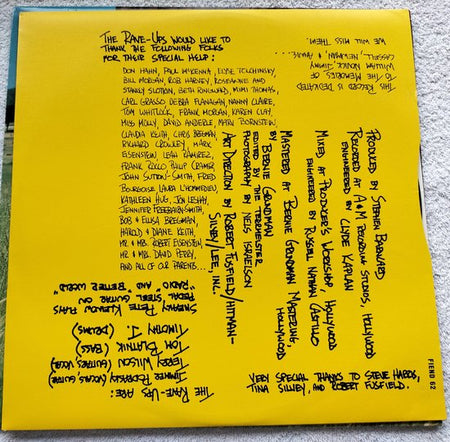 THE RAVE-UPS WOULD LIKE TO
THANK THE FOLLOWING FOLKS
FOR THEIR SPECIAL HELP:
DON HAHN, PAUL McKENNA, EDDIE TOLCHINSKY,
BILL MORGAN, ROB HARVEY, ROSEANNE AND
STANLEY SLOTKIN, BETH ROSENWALD, MIMI THOMAS,
CARL GRASSO, DEBRA FLANAGAN, NANNY CLAIRE,
TOM WHITLOCK, FRANK MORGAN, KAREN CLAY,
MISS MOLLY, DAVID ANDERLE, MARV BORNSTEIN,
CLAUDIA KEITH, CHRIS BEEMAN,
RICHARD CROWLEY, MARK
EISENSTEIN, LEAH RAMIREZ,
FRANK ROCCO PHILIP CRAMER
JOHN SUTTON-SMITH, FRED
BOURGOISE, LAURA L'HOMMEDIEU,
KATHLEEN HUG, JON LESHAY,
JENNIFER FREEBAIRN-SMITH,
BOB & ELIISA BREGMAN,
HAROLD & DIANE KEITH,
MR & MRS. ROBERT EISENSTEIN,
MR & MRS. DAVID PERRY,
AND ALL OF OUR PARENTS...
THIS RECORD IS DEDICATED
TO THE MEMORIES OF
WILLIAM NOVICK, JIMMY
CASSELL, NEHAMKIN, & AMANI.....
WE WILL MISS THEM.
PRODUCED BY STEPHEN BARNCARD
RECORDED AT A&M RECORDING STUDIOS, HOLLYWOOD
ENGINEERED BY CLYDE KAPLAN
MIXED AT PRODUCER'S WORKSHOP, HOLLYWOOD
ENGINEERED BY RUSSELL NATHAN CASTILLO
MASTERED AT BERNIE GRUNDMAN MASTERING,
HOLLYWOOD
BY BERNIE GRUNDMAN
EDITED BY THE TERMEISTER
PHOTOGRAPHY BY NELS ISRAELSON
ART DIRECTION BY ROBERT FUSFIELD/HITMAN-
SILVEY/LEE, INC.
VERY SPECIAL THANKS TO STEVE HABIBI,
TINA SILVEY, AND ROBERT FUSFIELD.
THE RAVE-UPS ARE:
JIMMER PODRASKY (VOCALS, GUITAR)
TERRY WILSON (GUITARS, VOCALS)
TOM BLATNIK (BASS)
TIMOTHY J. (DRUMS)
SNEAKY PETE KLEINOW PLAYS
PEDAL STEEL GUITAR ON
"RADIO" AND "BETTER WORLD"
FIEND 62